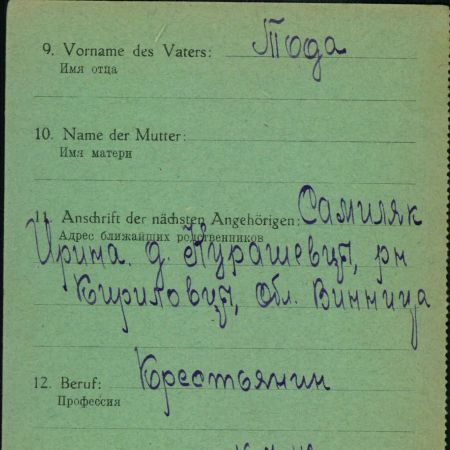 9. Vorname des Vaters: Тода
Имя отца
10. Name der Mutter:
Имя матери
11. Anschrift der nächsten Angehörigen: Самиляк
Адрес ближайших родственников
Ирина. д. Курашевцы, рн
Кириловцы, Обл. Винница
12. Beruf: Крестьянин
Профессия